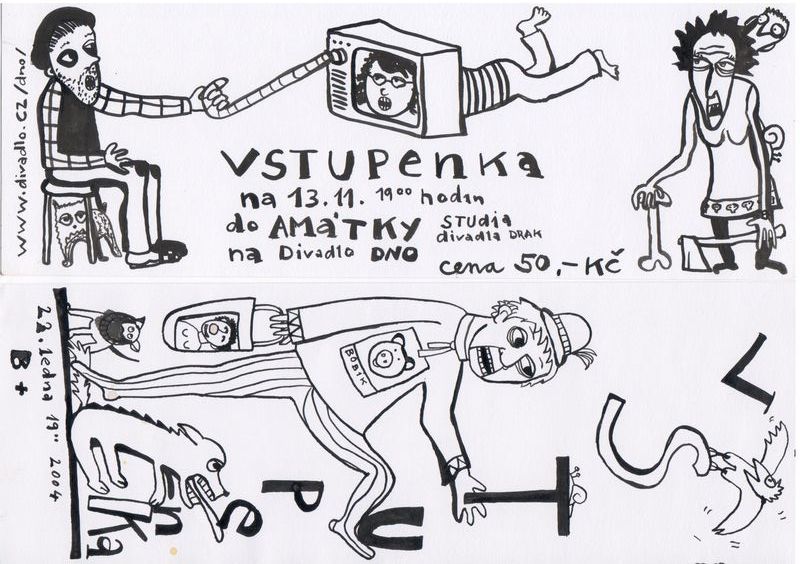 www.divadlo.cz/dno/
VSTUPENKA
na 13.11. 19⁰⁰ hodin
do AMÁTKY STUdia
divadla DRAK
na Divadlo DNO
cena 50,- Kč
22. ledna 19⁰⁰ 2004
B+
BOBIK
VSTUPenKa